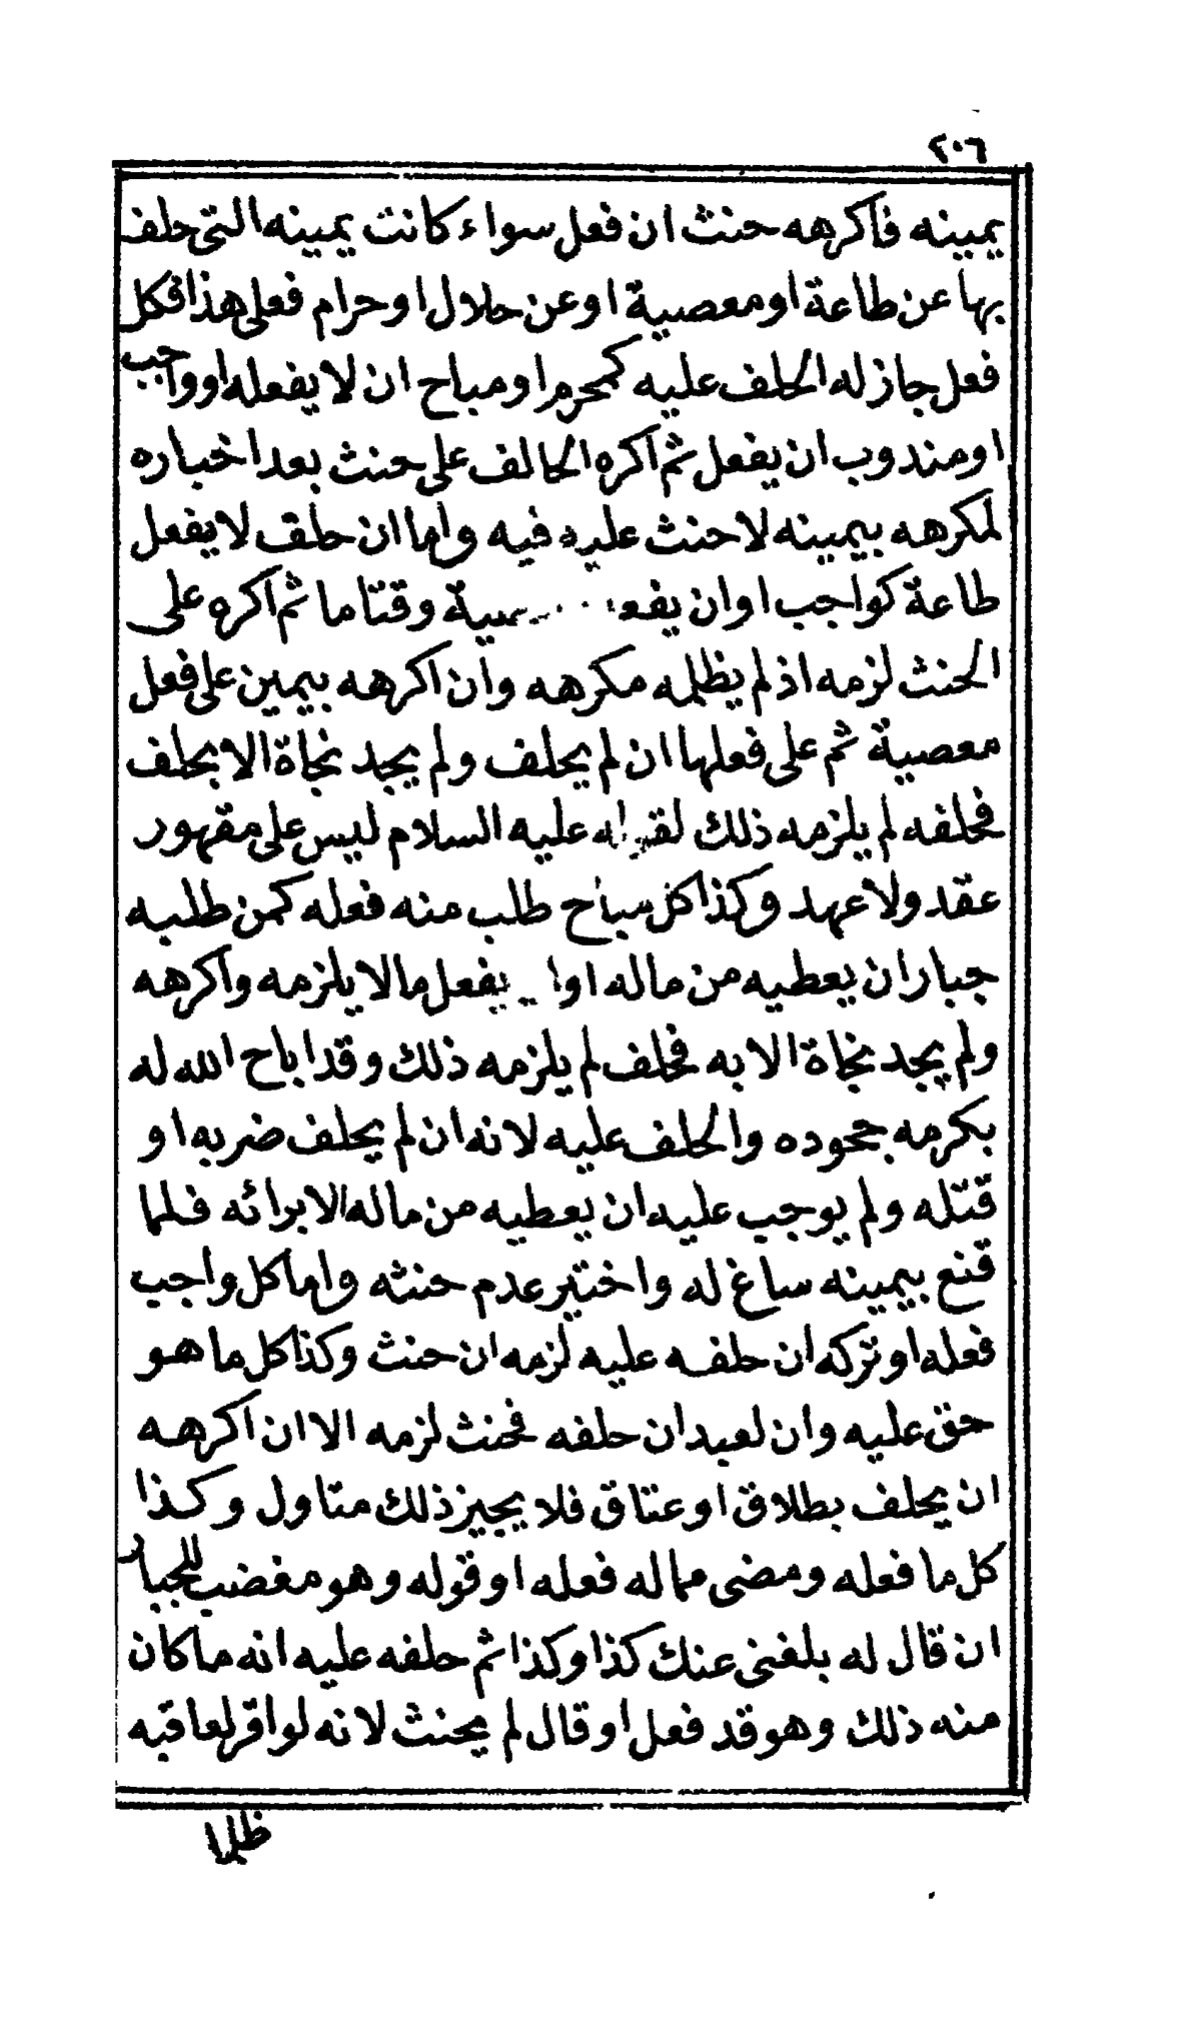 ٢٠٦
يمينه فأكرهه حنث ان فعل سواء كانت يمينه التى حلف
بها عن طاعة او معصية او عن حلال او حرام فعلى هذا فكل
فعل جاز له الحلف عليه كمحرم او مباح ان لا يفعله او واجب
او مندوب ان يفعل ثم اكره الحالف على حنث بعد اخباره
لمكرهه بيمينه لا حنث عليه فيه واما ان حلف لا يفعل
طاعة كواجب او ان يفعل معصية وقتا ما ثم اكره على
الحنث لزمه اذ لم يظلمه مكرهه وان اكرهه بيمين على فعل
معصية ثم على فعلها ان لم يحلف ولم يجد نجاة الا بحلف
فحلفه لم يلزمه ذلك لقوله عليه السلام ليس على مقهور
عقد ولا عهد وكذا كل مباح طلب منه فعله كمن طلبه
جبار ان يعطيه من ماله او يفعل ما لا يلزمه واكرهه
ولم يجد نجاة الا به فحلف لم يلزمه ذلك وقد اباح الله له
بكرمه جحوده والحلف عليه لانه ان لم يحلف ضربه او
قتله ولم يوجب عليه ان يعطيه من ماله الا برائه فلما
قنع بيمينه ساغ له واختير عدم حنثه واما كل واجب
فعله او تركه ان حلفه عليه لزمه ان حنث وكذا كل ما هو
حق عليه وان لعبد ان حلفه فحنث لزمه الا ان اكرهه
ان يحلف بطلاق او عتاق فلا يجيز ذلك متاول وكذا
كل ما فعله ومضى مما له فعله او قوله وهو مغضب للجبار
ان قال له بلغنى عنك كذا وكذا ثم حلفه عليه انه ما كان
منه ذلك وهو قد فعل او قال لم يحنث لانه لو اقر لعاقبه
ظلما